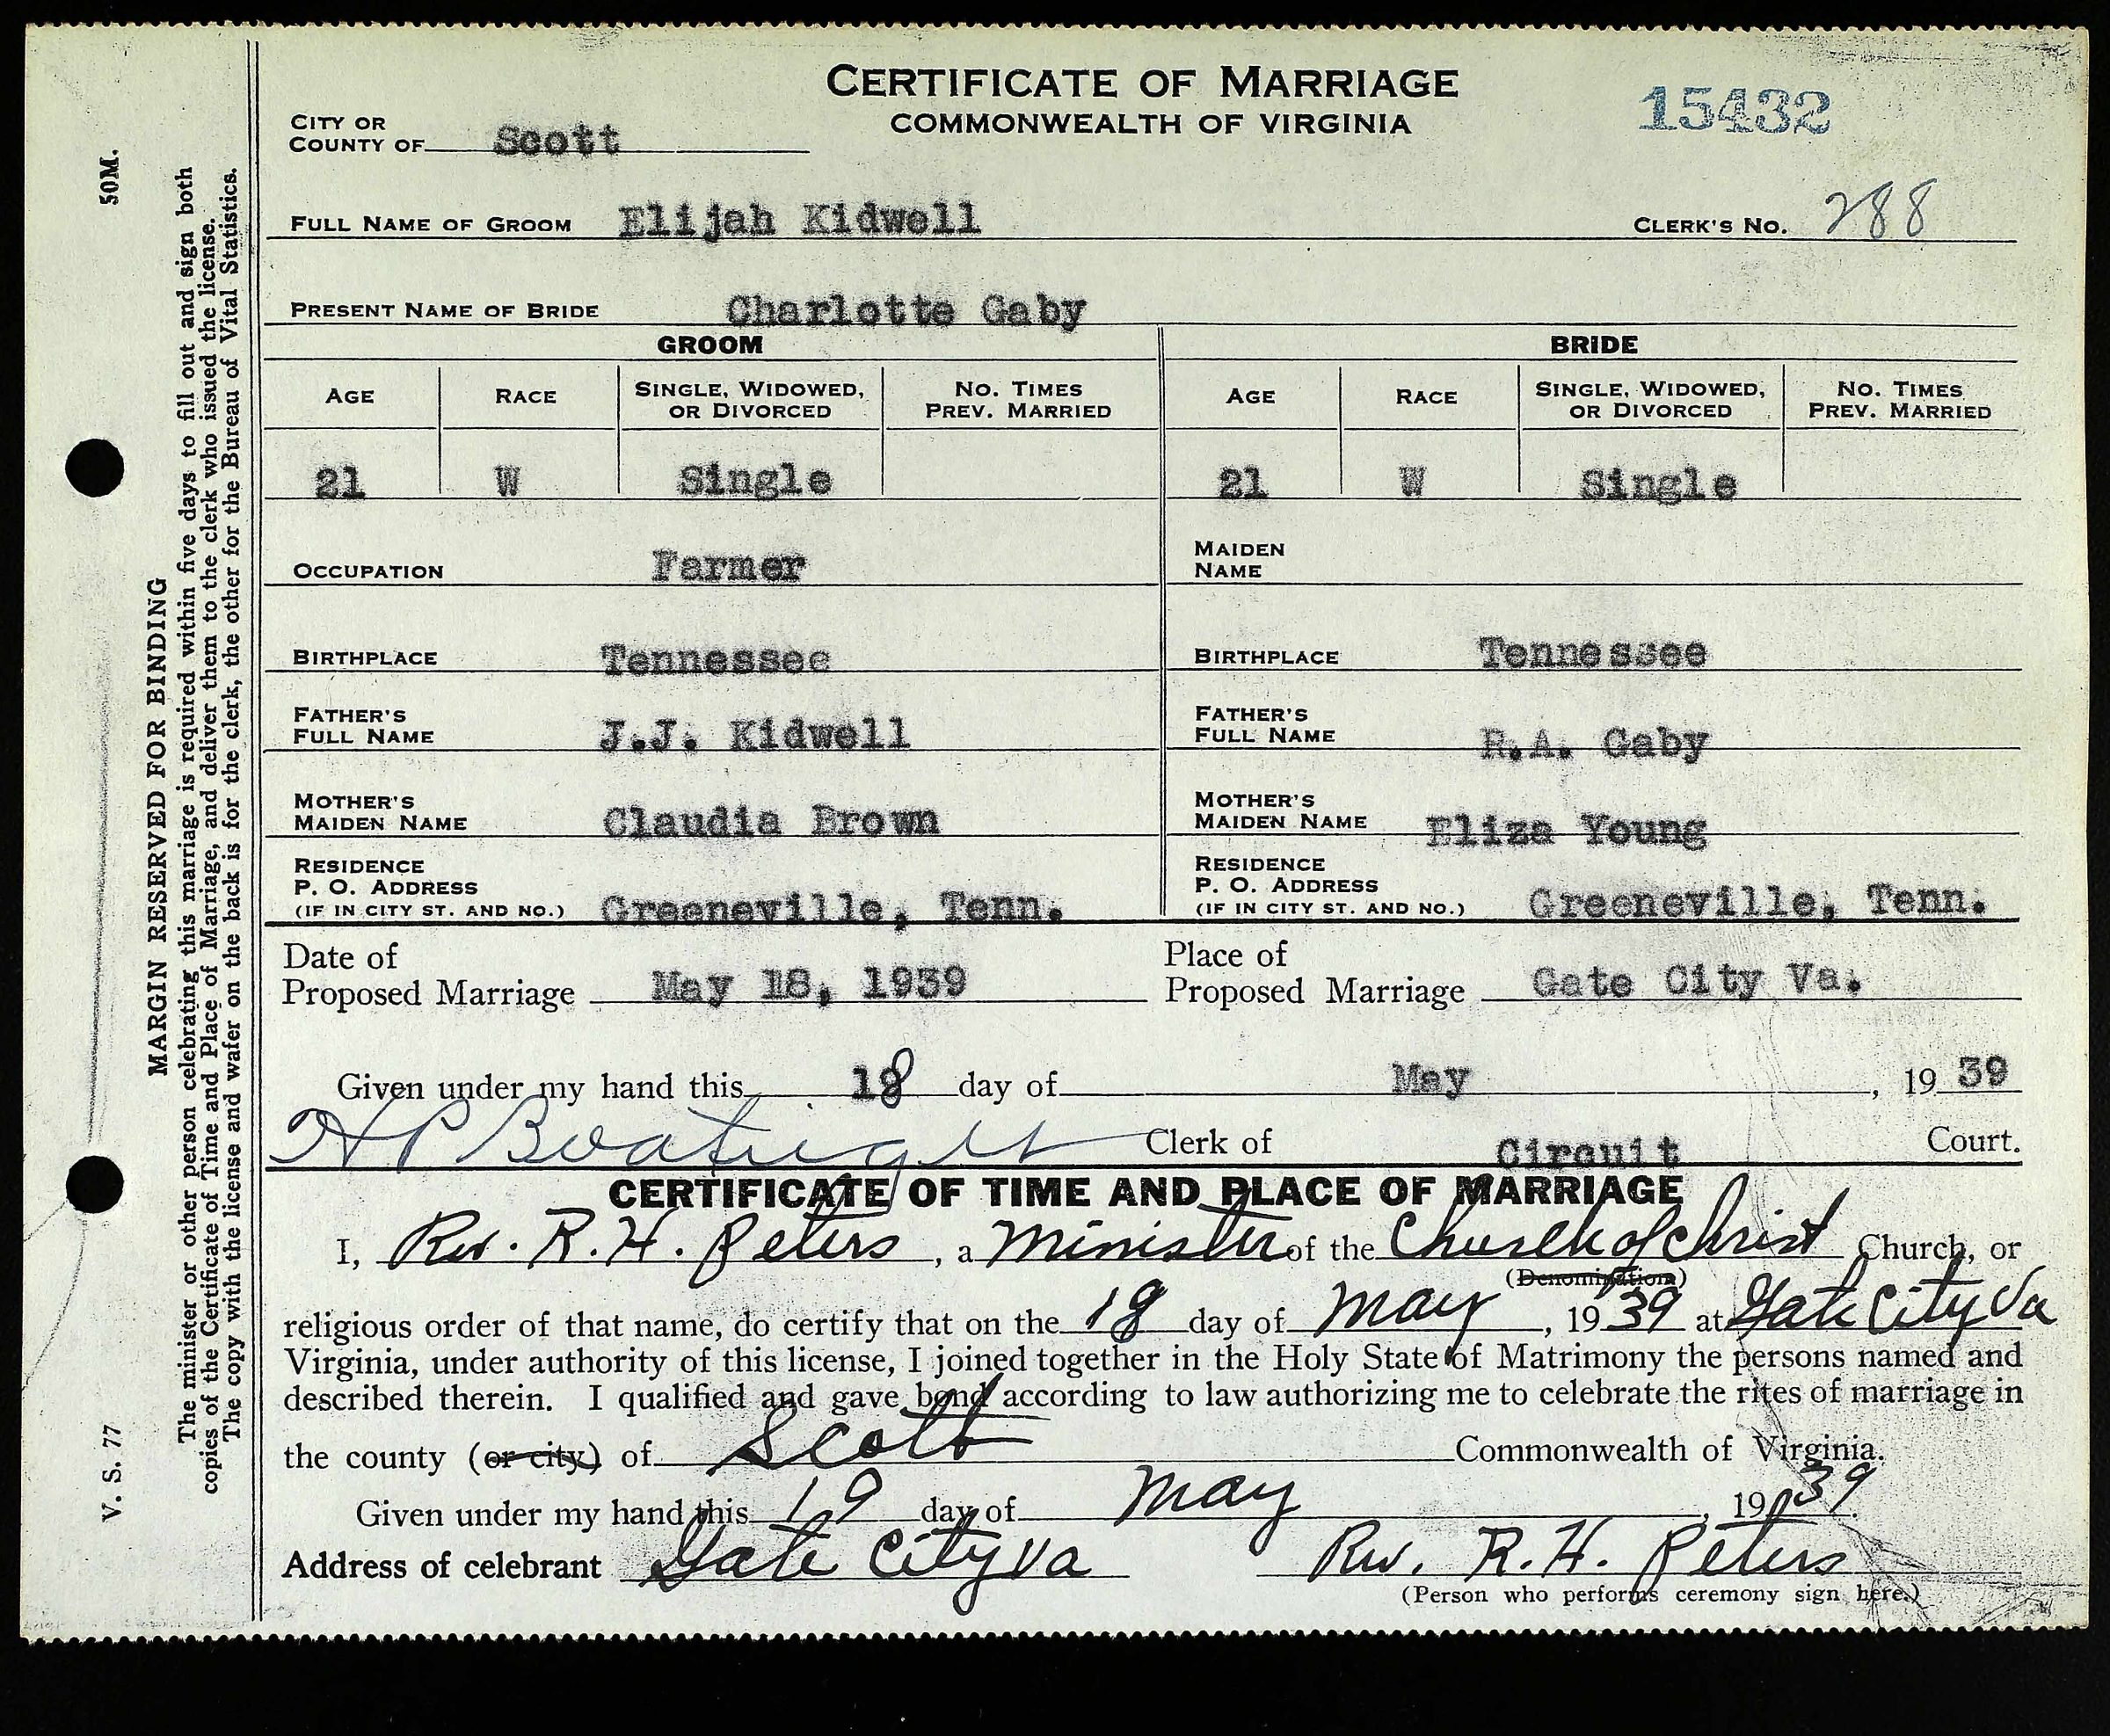 CERTIFICATE OF MARRIAGE
COMMONWEALTH OF VIRGINIA
15432
CITY OR
COUNTY OF Scott
FULL NAME OF GROOM Elijah Kidwell CLERK'S NO. 288
PRESENT NAME OF BRIDE Charlotte Gaby
GROOM BRIDE
AGE RACE SINGLE, WIDOWED, OR DIVORCED NO. TIMES PREV. MARRIED AGE RACE SINGLE, WIDOWED, OR DIVORCED NO. TIMES PREV. MARRIED
21 W Single 21 W Single
OCCUPATION Farmer MAIDEN NAME
BIRTHPLACE Tennessee BIRTHPLACE Tennessee
FATHER'S FULL NAME J.J. Kidwell FATHER'S FULL NAME R.A. Gaby
MOTHER'S MAIDEN NAME Claudia Brown MOTHER'S MAIDEN NAME Eliza Young
RESIDENCE P. O. ADDRESS (IF IN CITY ST. AND NO.) Greeneville, Tenn. RESIDENCE P. O. ADDRESS (IF IN CITY ST. AND NO.) Greeneville, Tenn.
Date of Proposed Marriage May 18, 1939 Place of Proposed Marriage Gate City Va.
Given under my hand this 18 day of May, 19 39
H P Boatright Clerk of Circuit Court.
CERTIFICATE OF TIME AND PLACE OF MARRIAGE
I, Rev. R. H. Peters, a Minister of the Church of Christ Church, or
(Denomination)
religious order of that name, do certify that on the 18 day of May, 19 39 at Gate City Va
Virginia, under authority of this license, I joined together in the Holy State of Matrimony the persons named and
described therein. I qualified and gave bond according to law authorizing me to celebrate the rites of marriage in
the county (or city) of Scott Commonwealth of Virginia.
Given under my hand this 19 day of May, 19 39
Address of celebrant Gate City Va Rev. R. H. Peters
(Person who performs ceremony sign here.)
MARGIN RESERVED FOR BINDING
The minister or other person celebrating this marriage is required within five days to fill out and sign both
copies of the Certificate of Time and Place of Marriage, and deliver them to the clerk who issued the license.
The copy with the license and wafer on the back is for the clerk, the other for the Bureau of Vital Statistics.
V. S. 77 50M.